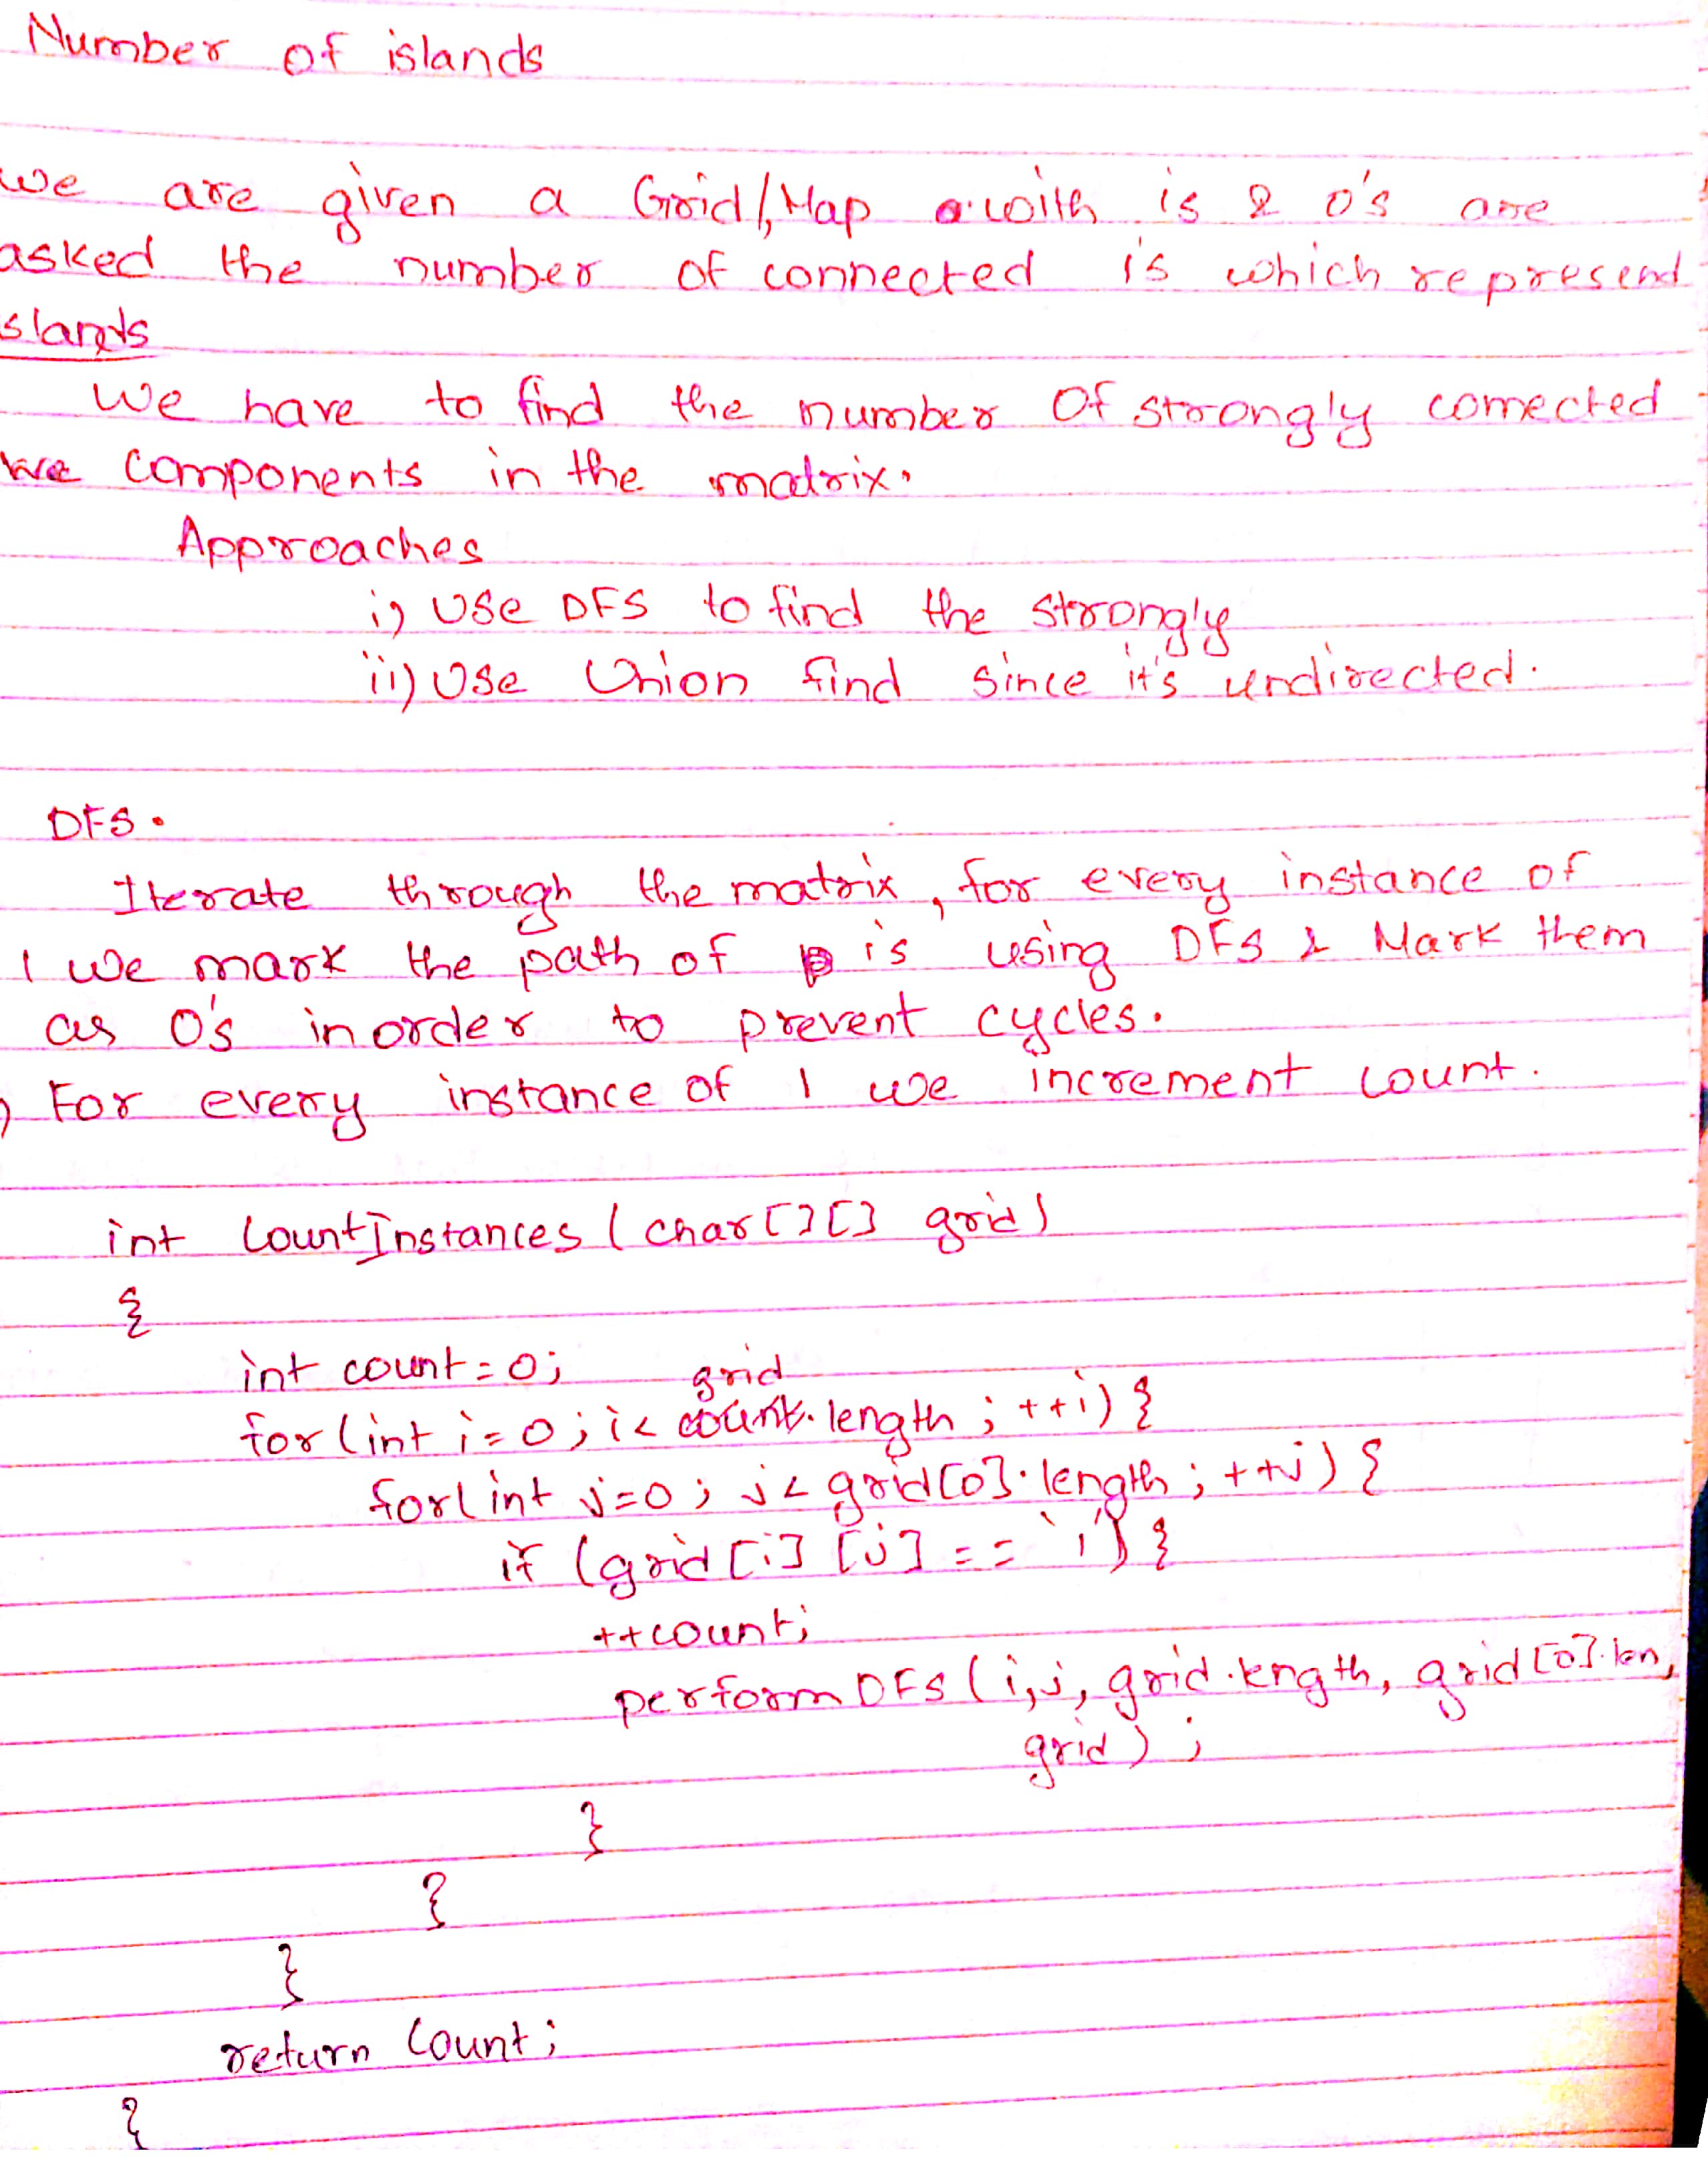 Number of islands
we are given a Grid/Map with 1s & 0's are
asked the number of connected 1's which represend
slands
We have to find the number Of strongly connected
components in the matrix.
Approaches
i) Use DFS to find the strongly
ii) Use Union find since it's undirected.
DFS.
Iterate through the matrix, for every instance of
1 we mark the path of 1s using DFS & Mark them
as 0's inorder to prevent cycles.
For every instance of 1 we increment count.
int CountInstances (char[][] grid)
{
int count=0;
for(int i=0; i< grid.length; ++i) {
for(int j=0; j< grid[0].length; ++j) {
if (grid[i][j] == '1') {
++count;
perform DFS (i,j, grid.length, grid[0].len,
grid) ;
}
}
}
return Count;
}